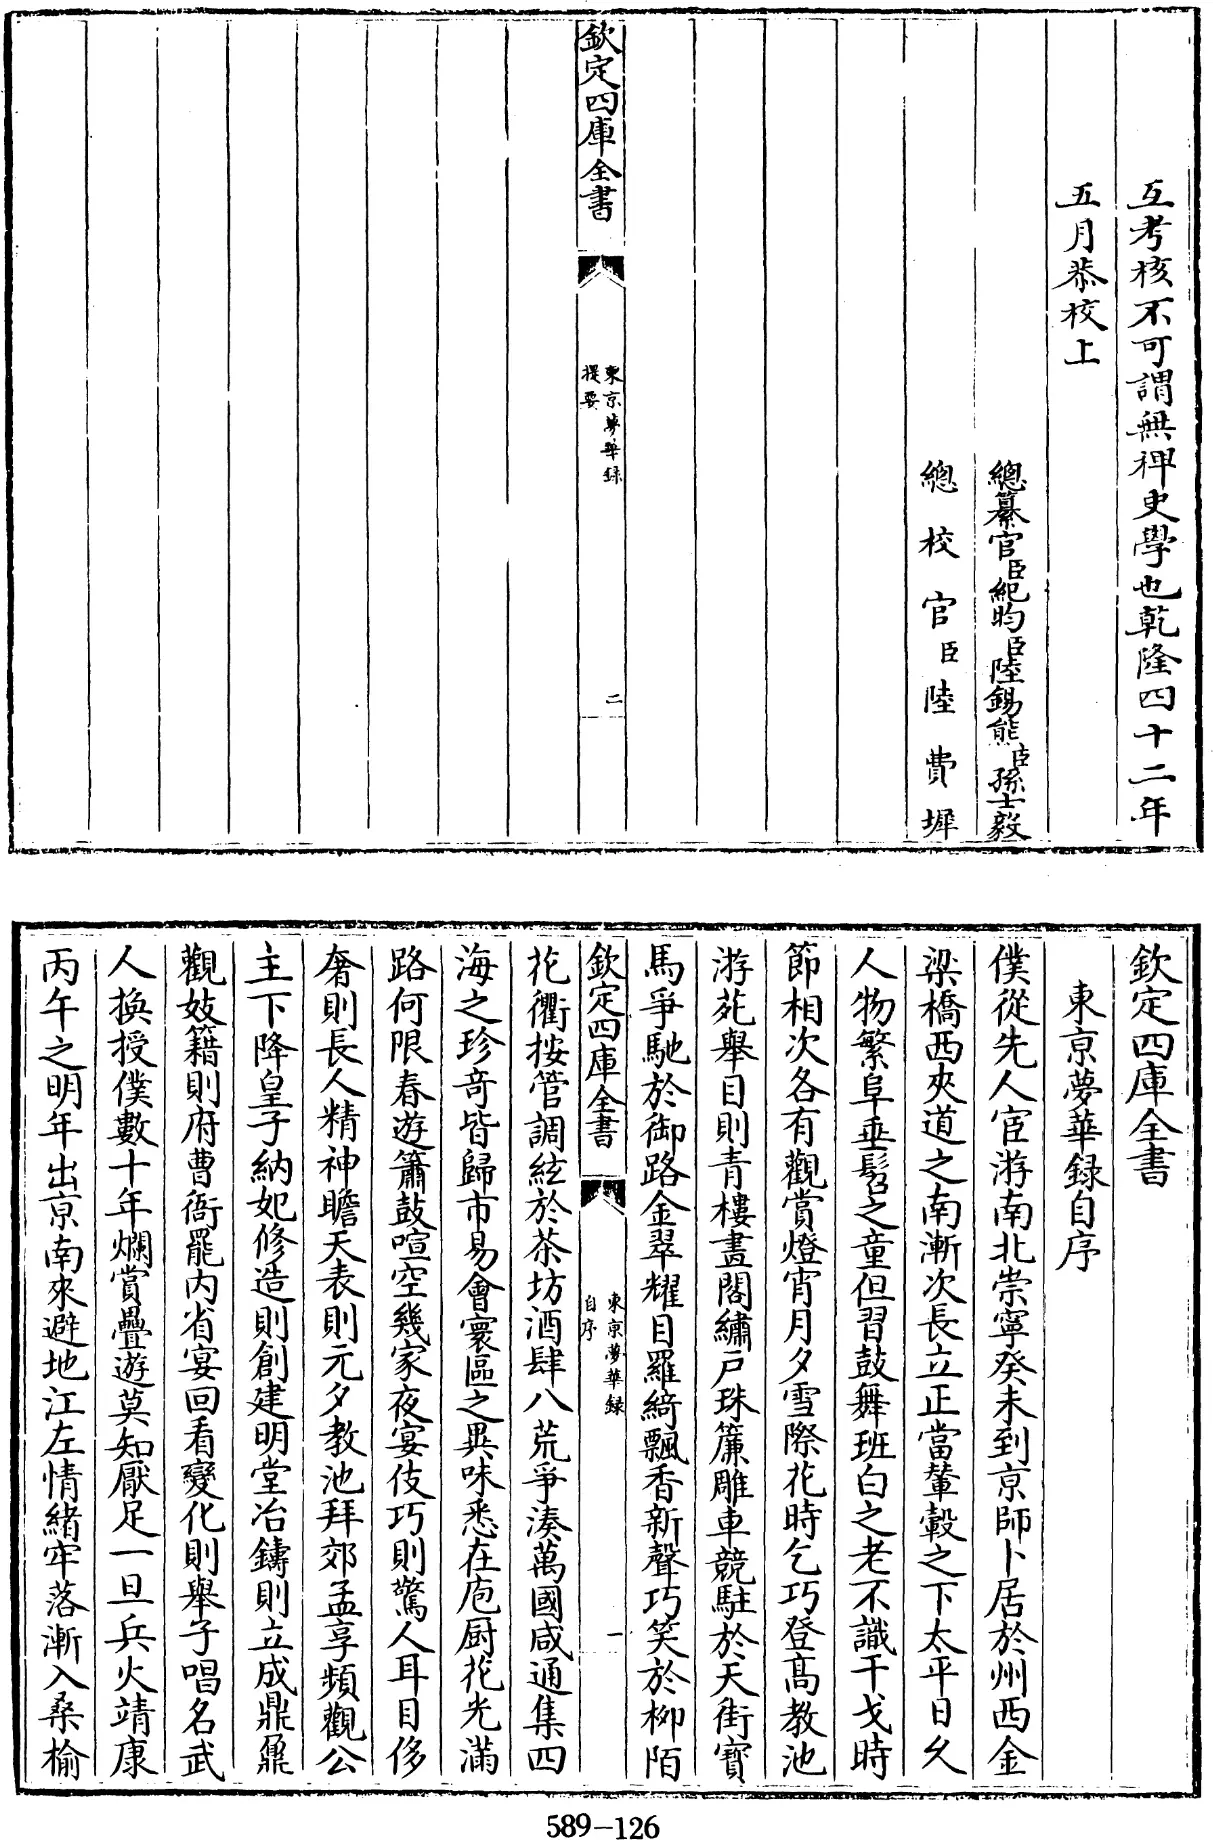 互考核不可謂無裨史學也乾隆四十二年
五月恭校上
總纂官臣紀昀臣陸錫熊臣孫士毅
總校官臣陸費墀
欽定四庫全書
東京夢華録
提要
二
欽定四庫全書
東京夢華録自序
僕從先人宦游南北崇寧癸未到京師卜居於州西金
梁橋西夾道之南漸次長立正當輦轂之下太平日久
人物繁阜垂髫之童但習鼓舞班白之老不識干戈時
節相次各有觀賞燈宵月夕雪際花時乞巧登高教池
游苑舉目則青樓畫閣繡戸珠簾雕車競駐於天街寳
馬爭馳於御路金翠耀目羅綺飄香新聲巧笑於栁陌
欽定四庫全書
東京夢華録
自序
一
花衢按管調絃於茶坊酒肆八荒爭湊萬國咸通集四
海之珍奇皆歸市易會寰區之異味悉在庖厨花光滿
路何限春遊簫鼓喧空幾家夜宴伎巧則驚人耳目侈
奢則長人精神瞻天表則元夕教池拜郊孟享頻觀公
主下降皇子納妃修造則創建明堂冶鑄則立成鼎鼐
觀妓籍則府曹衙罷内省宴回看變化則舉子唱名武
人換授僕數十年爛賞疊遊莫知厭足一旦兵火靖康
丙午之明年出京南來避地江左情緒牢落漸入桑榆
589-126